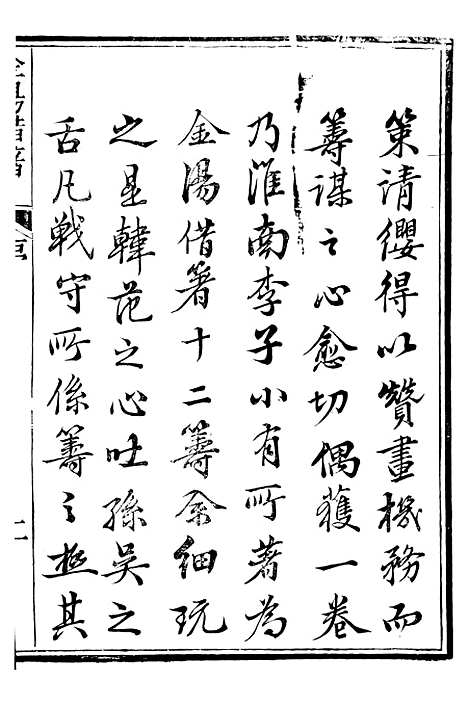 策請纓得以贊畫機務而
籌謀之心愈切偶獲一卷
乃淮南李子小有所著為
金湯借箸十二籌余細玩
之是韓范之心吐孫吳之
舌凡戰守所係籌之極其